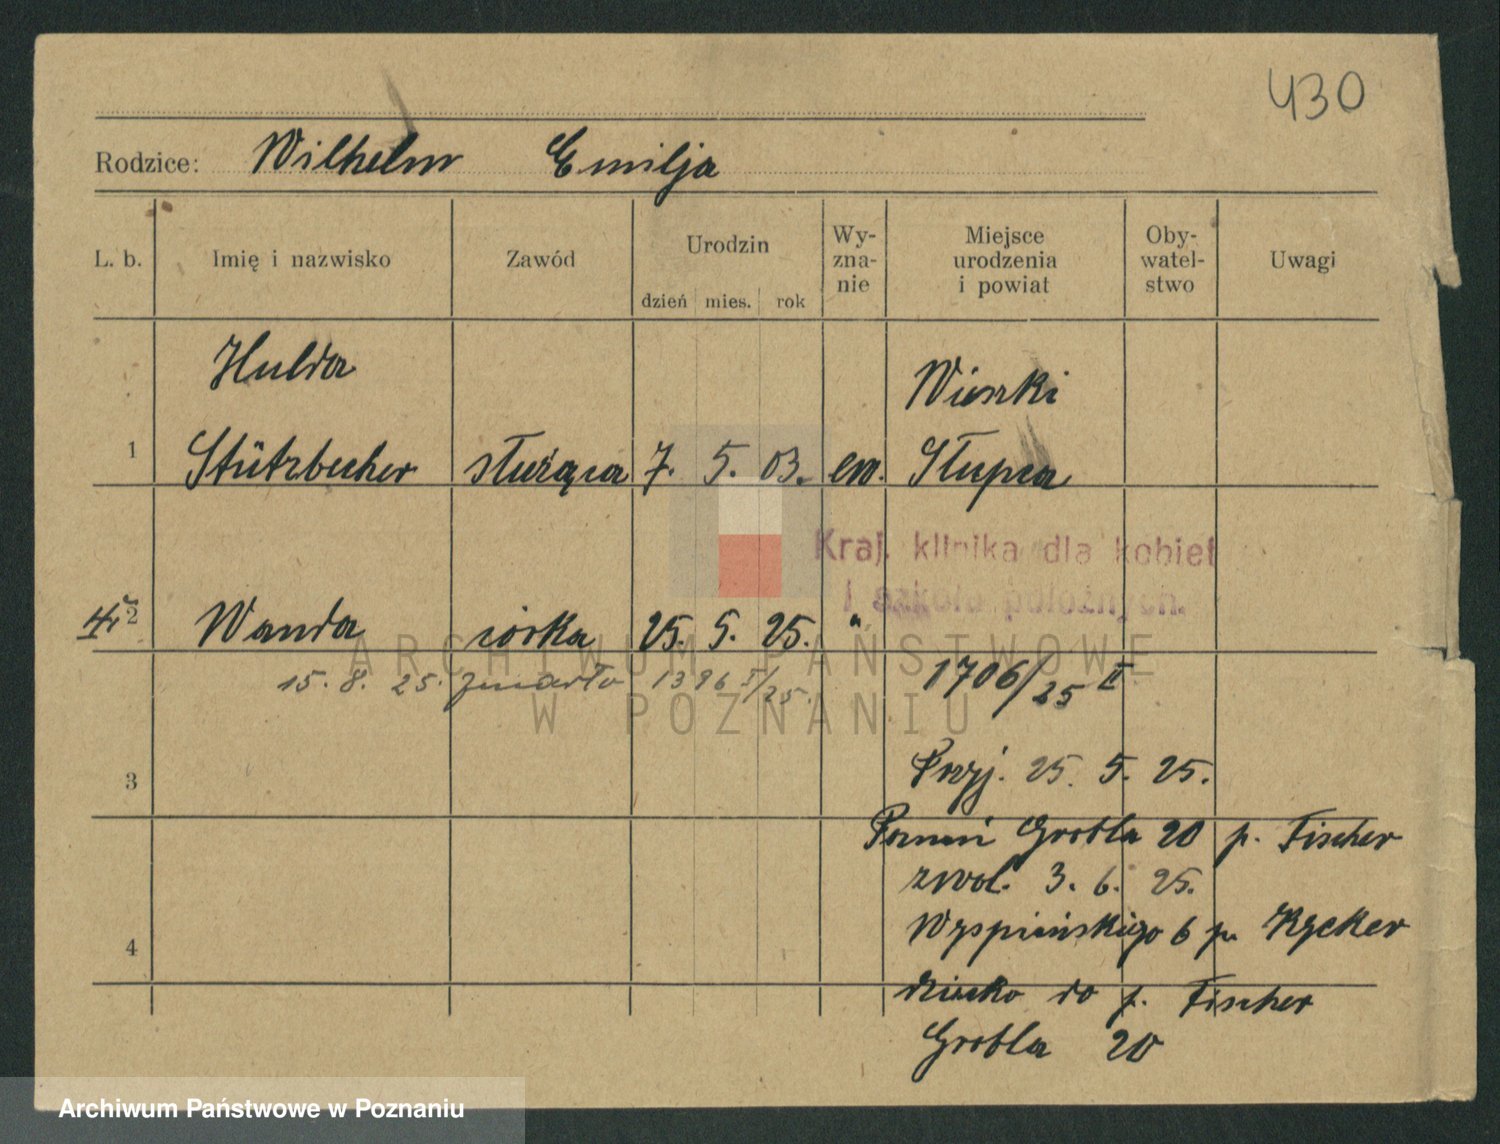 430
Rodzice: Wilhelm Emilja
L. b. Imię i nazwisko Zawód Urodzin Wy- Miejsce Oby- Uwagi
zna- urodzenia watel-
dzień mies. rok nie i powiat stwo
Hulda Wieszki
1 Stützbecher służąca 7. 5. 03. ew. Słupca
Kraj. klinika dla kobiet
i szkoła położnych.
2 Wanda córka 25. 5. 25. "
15. 8. 25. zmarło 1396 I/25. 1706/25 II
3 Przyj. 25. 5. 25.
Poznań Grobla 20 p. Fischer
zwol. 3. 6. 25.
4 Wyspiańskiego 6 p. Rycker
dziecko do p. Fischer
Grobla 20
ARCHIWUM PAŃSTWOWE
W POZNANIU
Archiwum Państwowe w Poznaniu